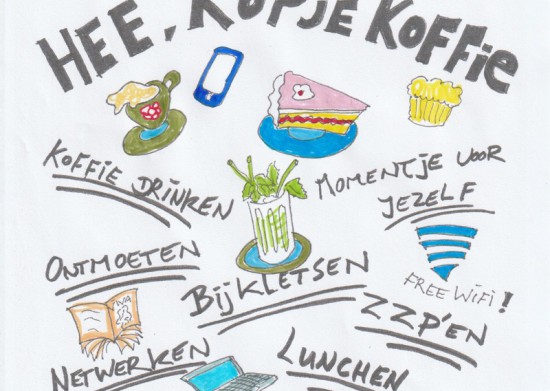 HEE, KOPJE KOFFIE
KOFFIE DRINKEN
MOMENTJE VOOR
JEZELF
ONTMOETEN
BIJKLETSEN
FREE WiFi!
ZZP'EN
NETWERKEN
LUNCHEN